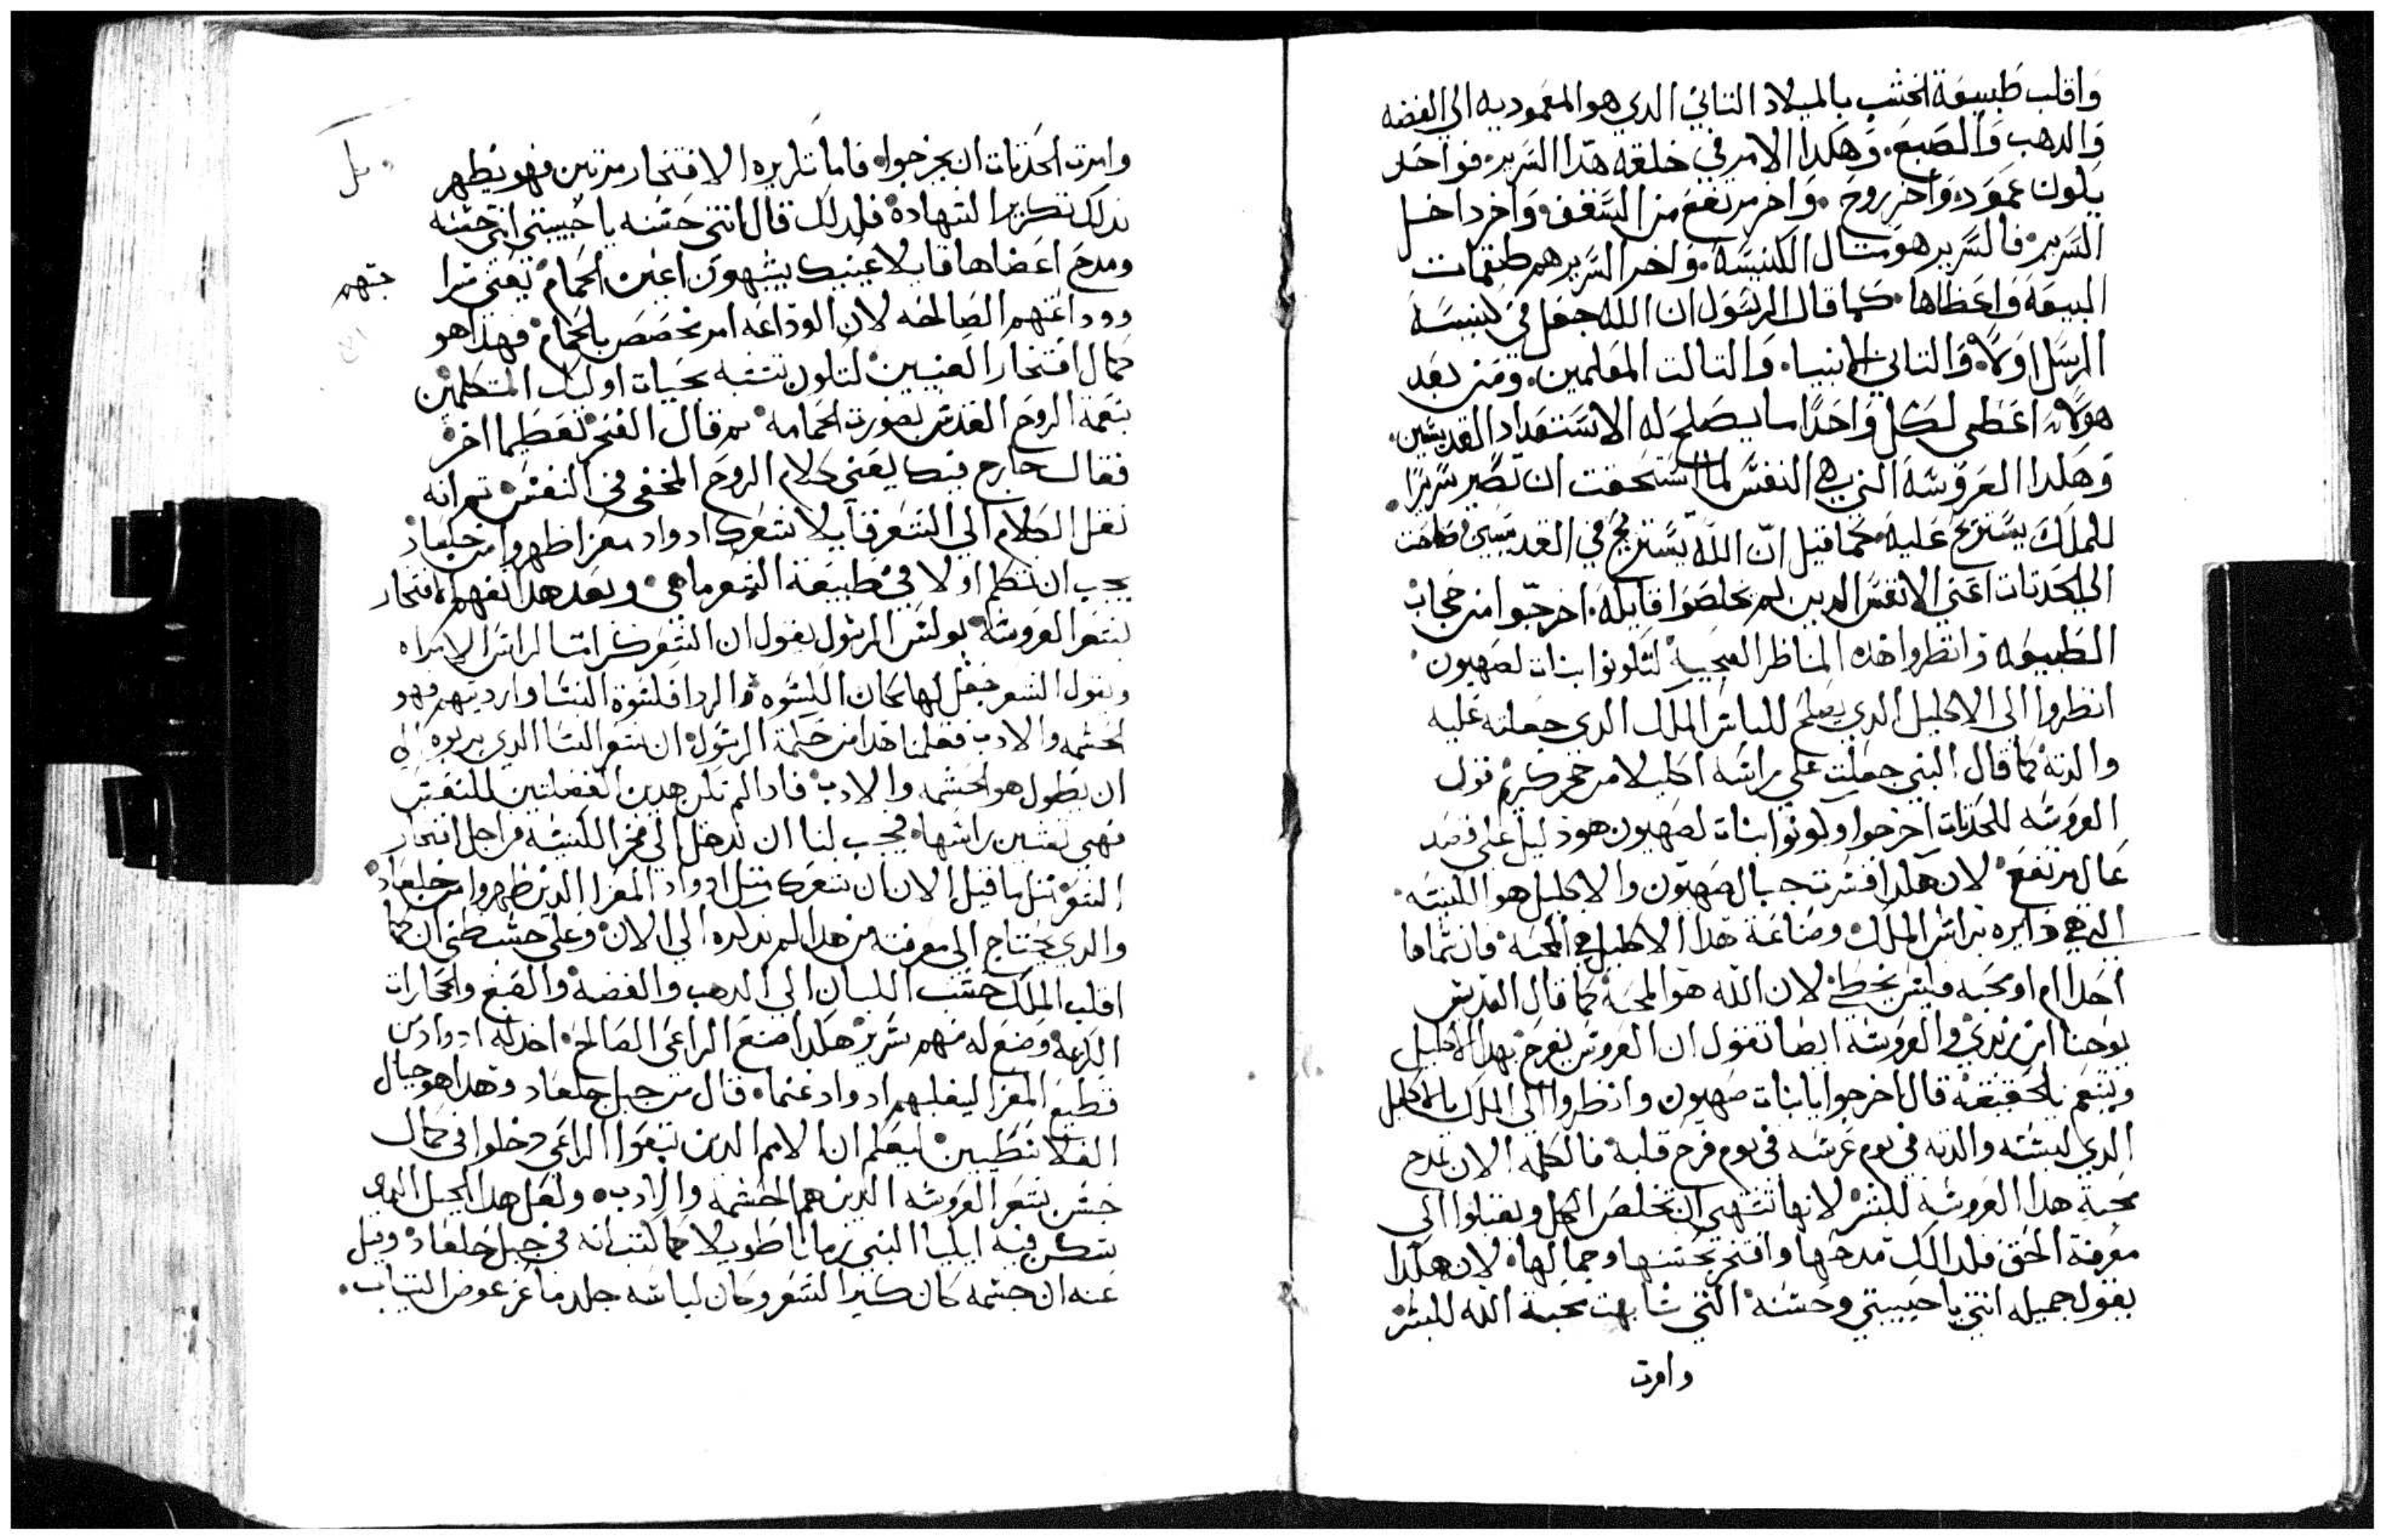 واقلب طبيعة الخشب بالميلاد التاني الدي هو المعموديه الي الفضه
والدهب والصبغ. وهكدا الامر في خلقة هدا السرير. فواحد
يكون عمود. واخر روح. واخر مرتفع من السقف. واخر داخل
السرير. فالسرير هو متال الكنيسه. واخر السرير هم طقمات
البيعه واعظاها. كما قال الرسول ان الله جعل في كنيسه
الرسل اولا. والتاني الانبيا. والتالت المعلمين. ومن بعد
هولاء اعطي لكل واحدا ما يصلح له الاستعداد القديسين.
وهكدا العروسه التي هي النفس لما استحقت ان تصير سريرا.
للملك يستريح عليه. كما قيل ان الله يستريح في القديسين
الي الحدتات اعني الانفس الدين لم يخلصوا قايله. اخرجوا من حجاب
الطبيعه وانظروا هده المناظر العجيبة لتكونوا بنات لصهيون.
انظروا الي الاكليل الدي يصلح للباس الملك الدي جعلته عليه
والدته كما قال النبي جعلت علي راسه اكليلا من حجر كريم قول
العروسه للحدتات اخرجوا وكونوا بنات لصهيون هو دليل علي قصد
عال مرتفع. لان هكدا فسرت جبال صهيون والاكليل هو الكنيسه.
التي هي دايره براس الملك وصناعة هدا الاكليل هي المحبه. فان سماها
احدا ام او محبه فليس يخطي. لان الله هو المحبة كما قال القديس
يوحنا ابن زبدي والعروسه ايضا تقول ان العروس يفرح بهدا الاكليل
ويتنعم بالحقيقه قال اخرجوا يا بنات صهيون وانظروا الي الملك بالاكليل
الدي لبسته والدته في يوم عرسه في يوم فرح قلبه فالكلمه الان تمدح
محبة هدا العروسه للبشر لانها تشتهي ان تخلص الكل ويقبلوا الي
معرفة الحق فلدالك مدحها وافتخر بحسنها وجمالها. لان هكدا
يقول جميله انتي يا حبيبتي وحسنه انتي شابهت محبة الله للبشر
وامرت
وامرت الحدتات ان يخرجوا. فاما تكريره الافتخار مرتين فهو يظهر
بدلك تكرير الشهادة فلدلك قال انتي حسنه يا حبيبتي انتي حسنه
ومدح اعضاها قايلا عينيك يشبهون اعين الحمام يعني سرا
ووداعتهم الصالحه لان الوداعه امر تخصص بالحمام فهدا هو
كمال افتخار العينين لتكون تشبه بحيات اوليك المتكلمين
بنعمة الروح القدس بصورت الحمامه تم قال الفخر تعظيما اخر
فقال خارج فيك يعني كلام الروح المخفي في النفس تم انه
نقل الكلام الي الشعر قايلا شعرك ادواد معزا ظهروا من جلعاد
يجب ان نتكلم اولا في طبيعة الشعر ما هي وبعد هدا نفهم افتخار
شعر العروسه بولس الرسول يقول ان الشعر كرامتا لراس الامراه
ويقول الشعر جعل لها مكان الكسوه والردا فكسوة النسا وارديتهم فهو
الحشمه والادب فعلمنا هدا من حكمة الرسول ان شعر النسا الدي يربوه الي
ان يطول هو الحشمه والادب فادا لم تكن هدين الفضلتين للنفس
فهي تشين راسها. فيجب لنا ان ندخل الي فخر الكنيسه من اجل افتخار
الشعر متل ما قيل الان ان شعرك متل ادواد المعزا الدين ظهروا من جلعاد
والدي يحتاج الي معرفته من هدا لم ندكره الي الان. وعلي حسب ظني ان كما
اقلب الملك خشب اللبنان الي الدهب والفضه والصبغ والحجارات
الكريمه وصنع له منهم سرير هكدا صنع الراعي الصالح. اخد له ادواد من
قطيع المعزا ليقلبهم ادواد غنماه قال من جبل جلعاد وهدا هو جبال
الفلانطيين ليعلم ان الامم الدين تبعوا الراعي دخلوا في كمال
حسن شعر العروسه الدين هم الحشمه والادب. ولعل هدا الجبل الدي
سكن فيه ايليا النبي زمانا طويلا كما كتب انه في جبل جلعاد وقيل
عنه ان جسمه كان كتير الشعر وكان لباسه جلد ماعز عوض التياب.